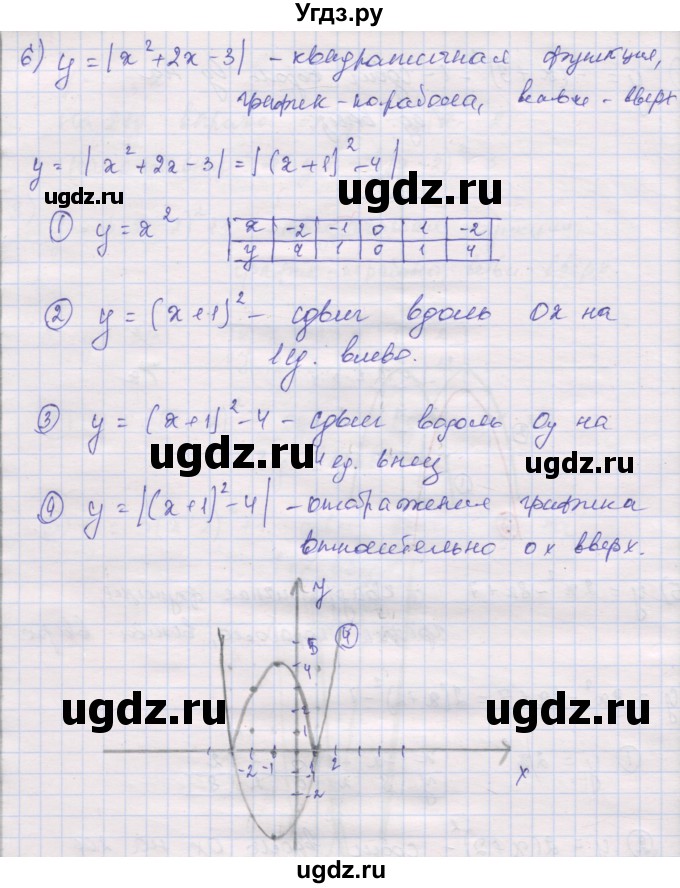 Угдз.ру
6) y = |x² + 2x - 3| - квадратичная функция,
график - парабола, ветви - вверх
y = |x² + 2x - 3| = |(x + 1)² - 4|
ugdz.ru ugdz.ru
① y = x²
x -2 -1 0 1 -2
y 4 1 0 1 4
② y = (x + 1)² - сдвиг вдоль Ox на
1 ед. влево.
③ y = (x + 1)² - 4 - сдвиг вдоль Oy на
4 ед. вниз
ugdz.ru ugdz.ru
④ y = |(x + 1)² - 4| - отображение графика
относительно ox вверх.
y
5 ④
4
ugdz.ru ugdz.ru
2
1
-2 -1 1 2
x
-1
-2
ugdz.ru